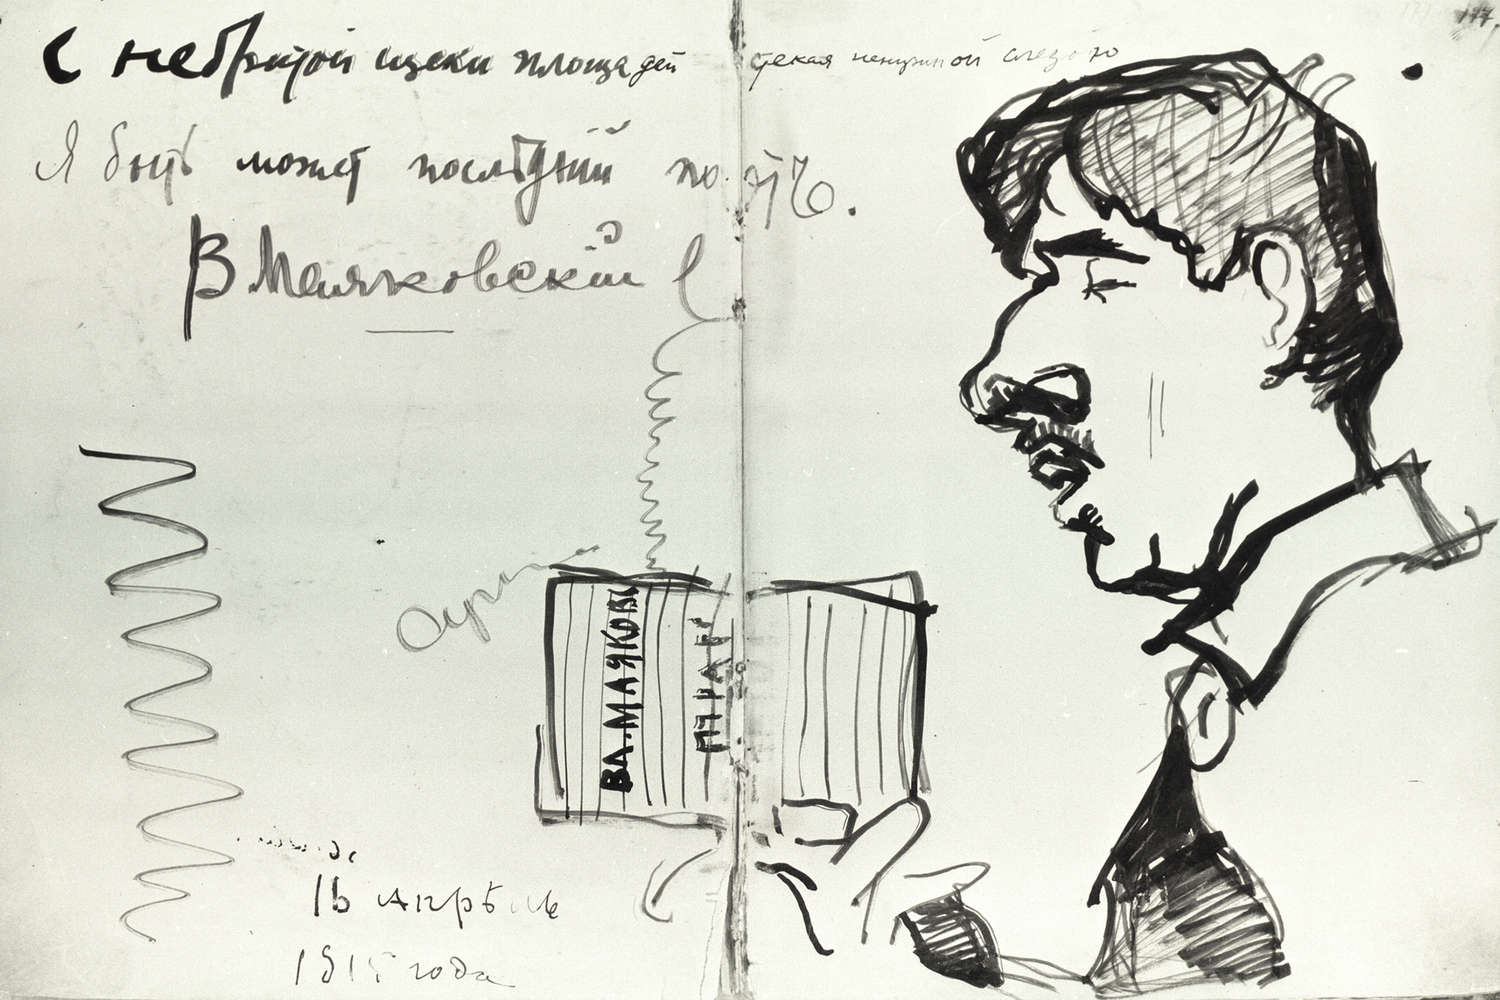 177.
С небритой щеки площадей стекая ненужной слезою
Я быть может послѣдний поэтъ.
В Маяковский
ВЛ. МАЯКОВС
16 апрѣль
1915 года